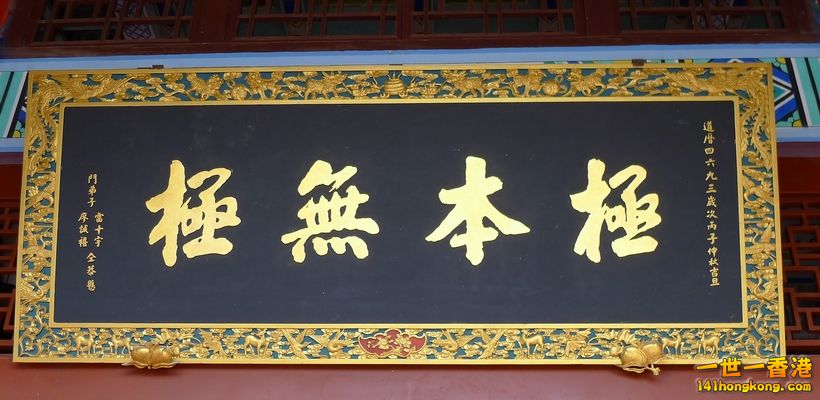 道曆四六九三歲次丙子仲秋吉旦
極本無極
門弟子
廖誠禧
仝恭懸
一世一香港
141hongkong.com